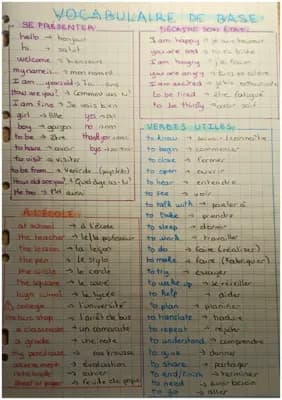 VOCABULAIRE DE BASE
SE PRÉSENTER
hello → bonjour
hi → salut
welcome → bienvenue
my name is... → mon nom est
I am ... years old → J'ai ... ans
How are you? → Comment vas-tu?
I am fine → Je vais bien
girl → fille
yes → oui
boy → garçon
no → non
to be → être
to have → avoir
to visit → visiter
to be from... → Venir de
How old are you? → Quel âge as-tu?
Me too → Moi aussi
DÉCRIRE SON ÉTAT
I am happy → je suis heureux
you are sad → tu es triste
I am hungry → j'ai faim
I am excited →
to be tired → être fatigué
to be thirsty → avoir soif
À L'ÉCOLE:
at school → à l'école
the teacher → le/la professeur
the lesson → la leçon
the pen → le stylo
the circle → le cercle
the square → le carré
high school → le lycée
college → l'université
the bus stop → l'arrêt de bus
a classmate → un camarade
a grade → une note
my pencilcase → ma trousse
assessment → évaluation
notebook → cahier
sheet of paper → feuille de papier
VERBES UTILES:
to know → savoir/connaître
to begin → commencer
to close → fermer
to open → ouvrir
to hear → entendre
to see → voir
to talk with → parler à
to take → prendre
to sleep → dormir
to work → travailler
to do → faire (réaliser)
to make → faire (fabriquer)
to try → essayer
to wake up → se réveiller
to help → aider
to plan → planifier
to translate → traduire
to repeat → répéter
to understand → comprendre
to give → donner
to share → partager
to end/finish → terminer
to need → avoir besoin
to go → aller